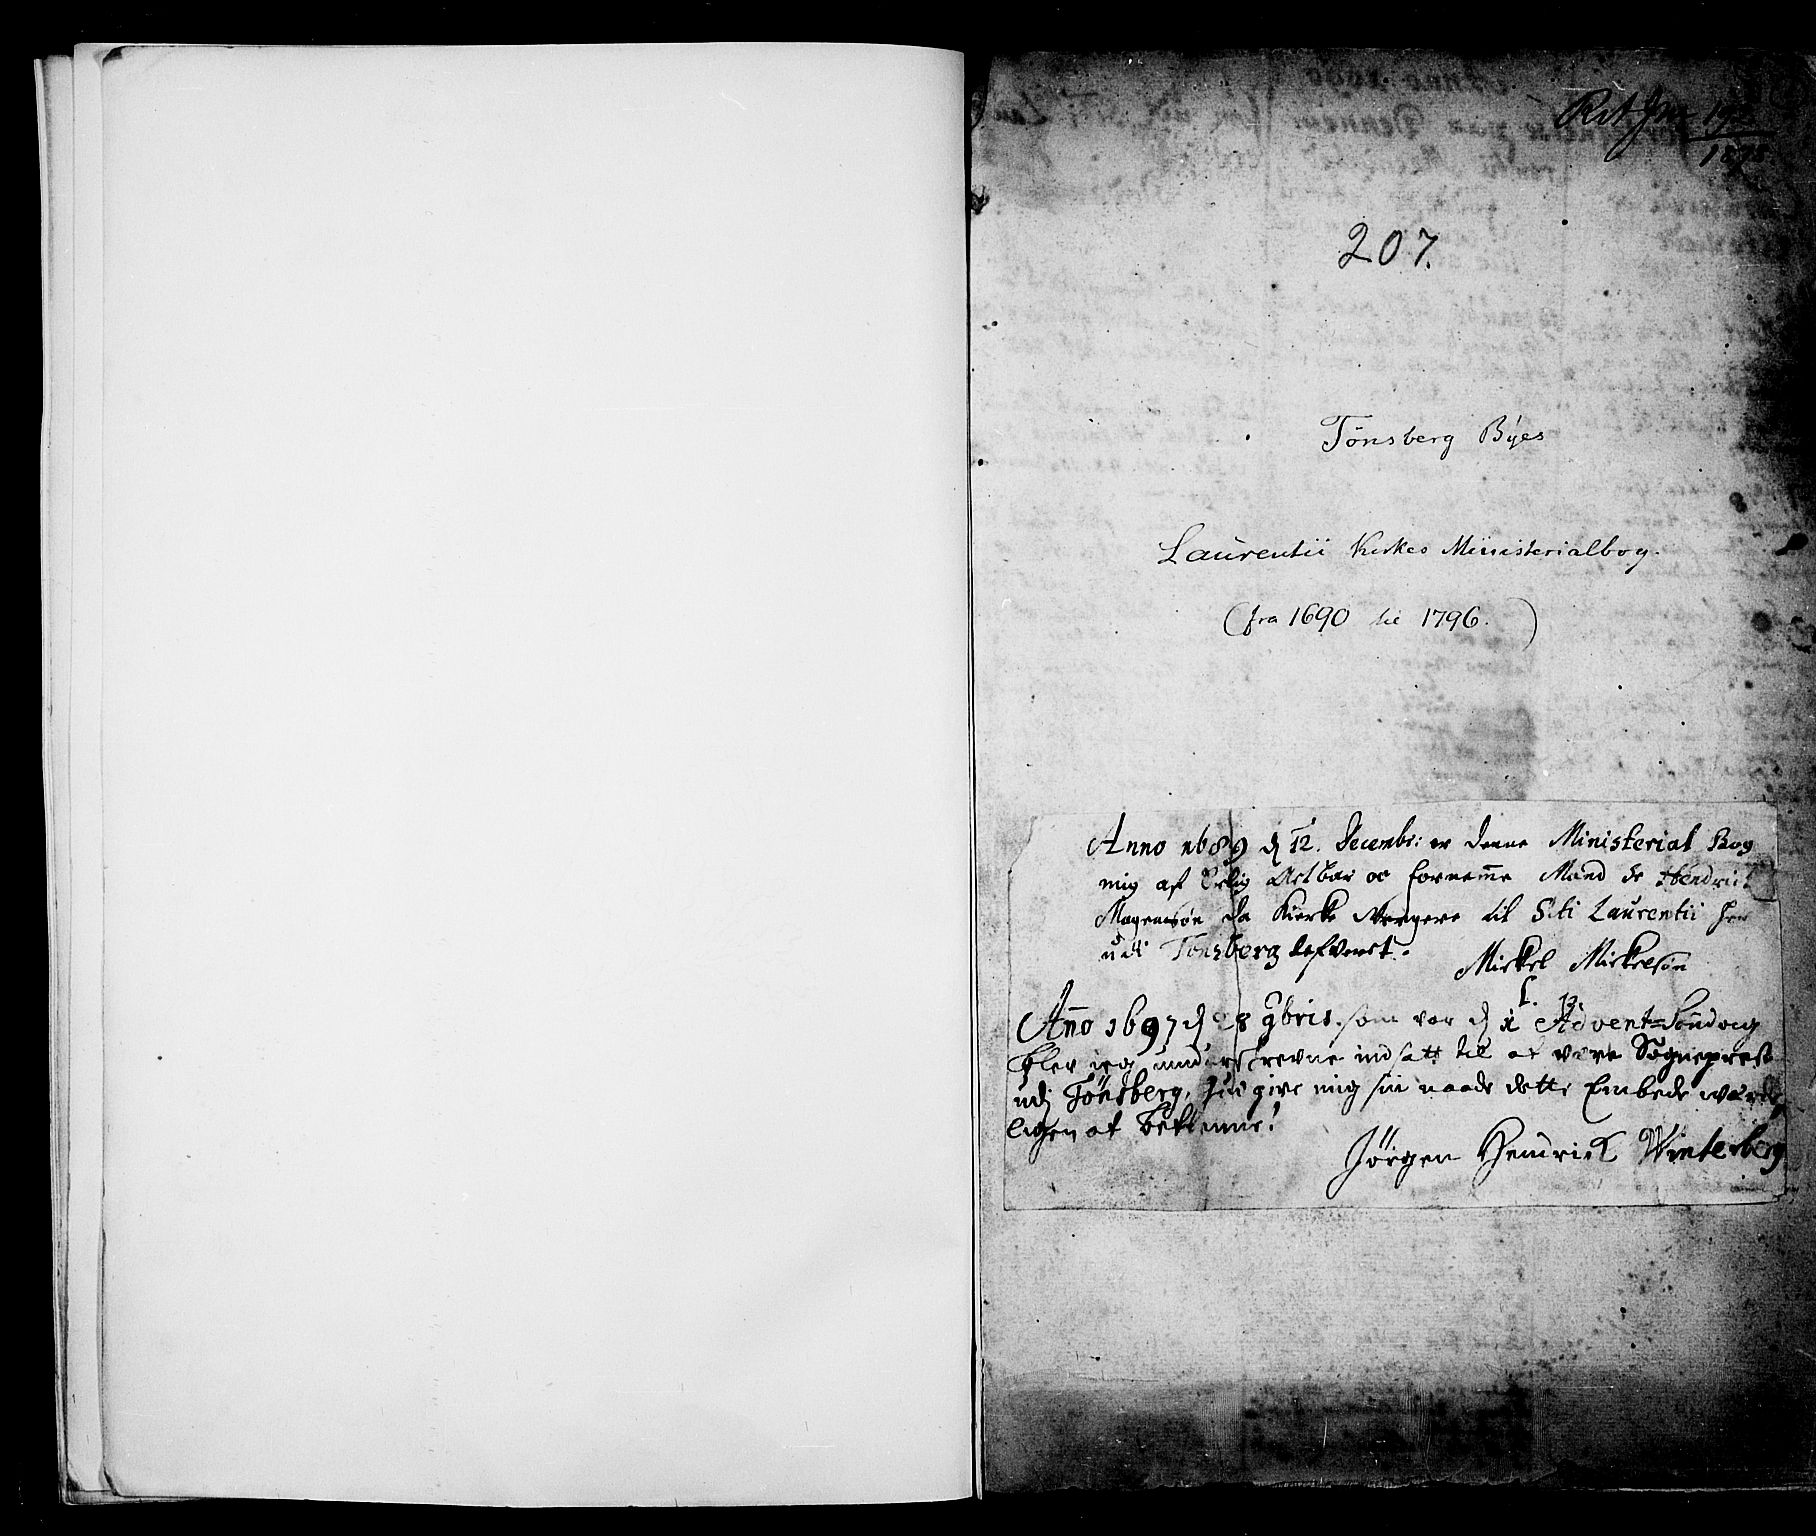 207.
Tönsberg Byes
Laurentii Kirkes Ministerialbog.
(fra 1690 til 1796.)
Anno 1689 d 12. Decembr: er denne Ministerial Bog
mig af Erlig Actbar oc fornemme Mand Hendrich
Mogensøn da Kierke Wergere til Scti Laurentii her
udi Tonsberg lefveret.
Mickel Mickelsøn
Año 1697 d 28 9bris. som var d 1 Advent=Söndag
blev jeg underskrevne indsatt til at være Sogneprest
udj Tönsberg, Gud give mig sin naade dette Embede værde
ligen at betienne!
Jörgen Hendrick Winterberg